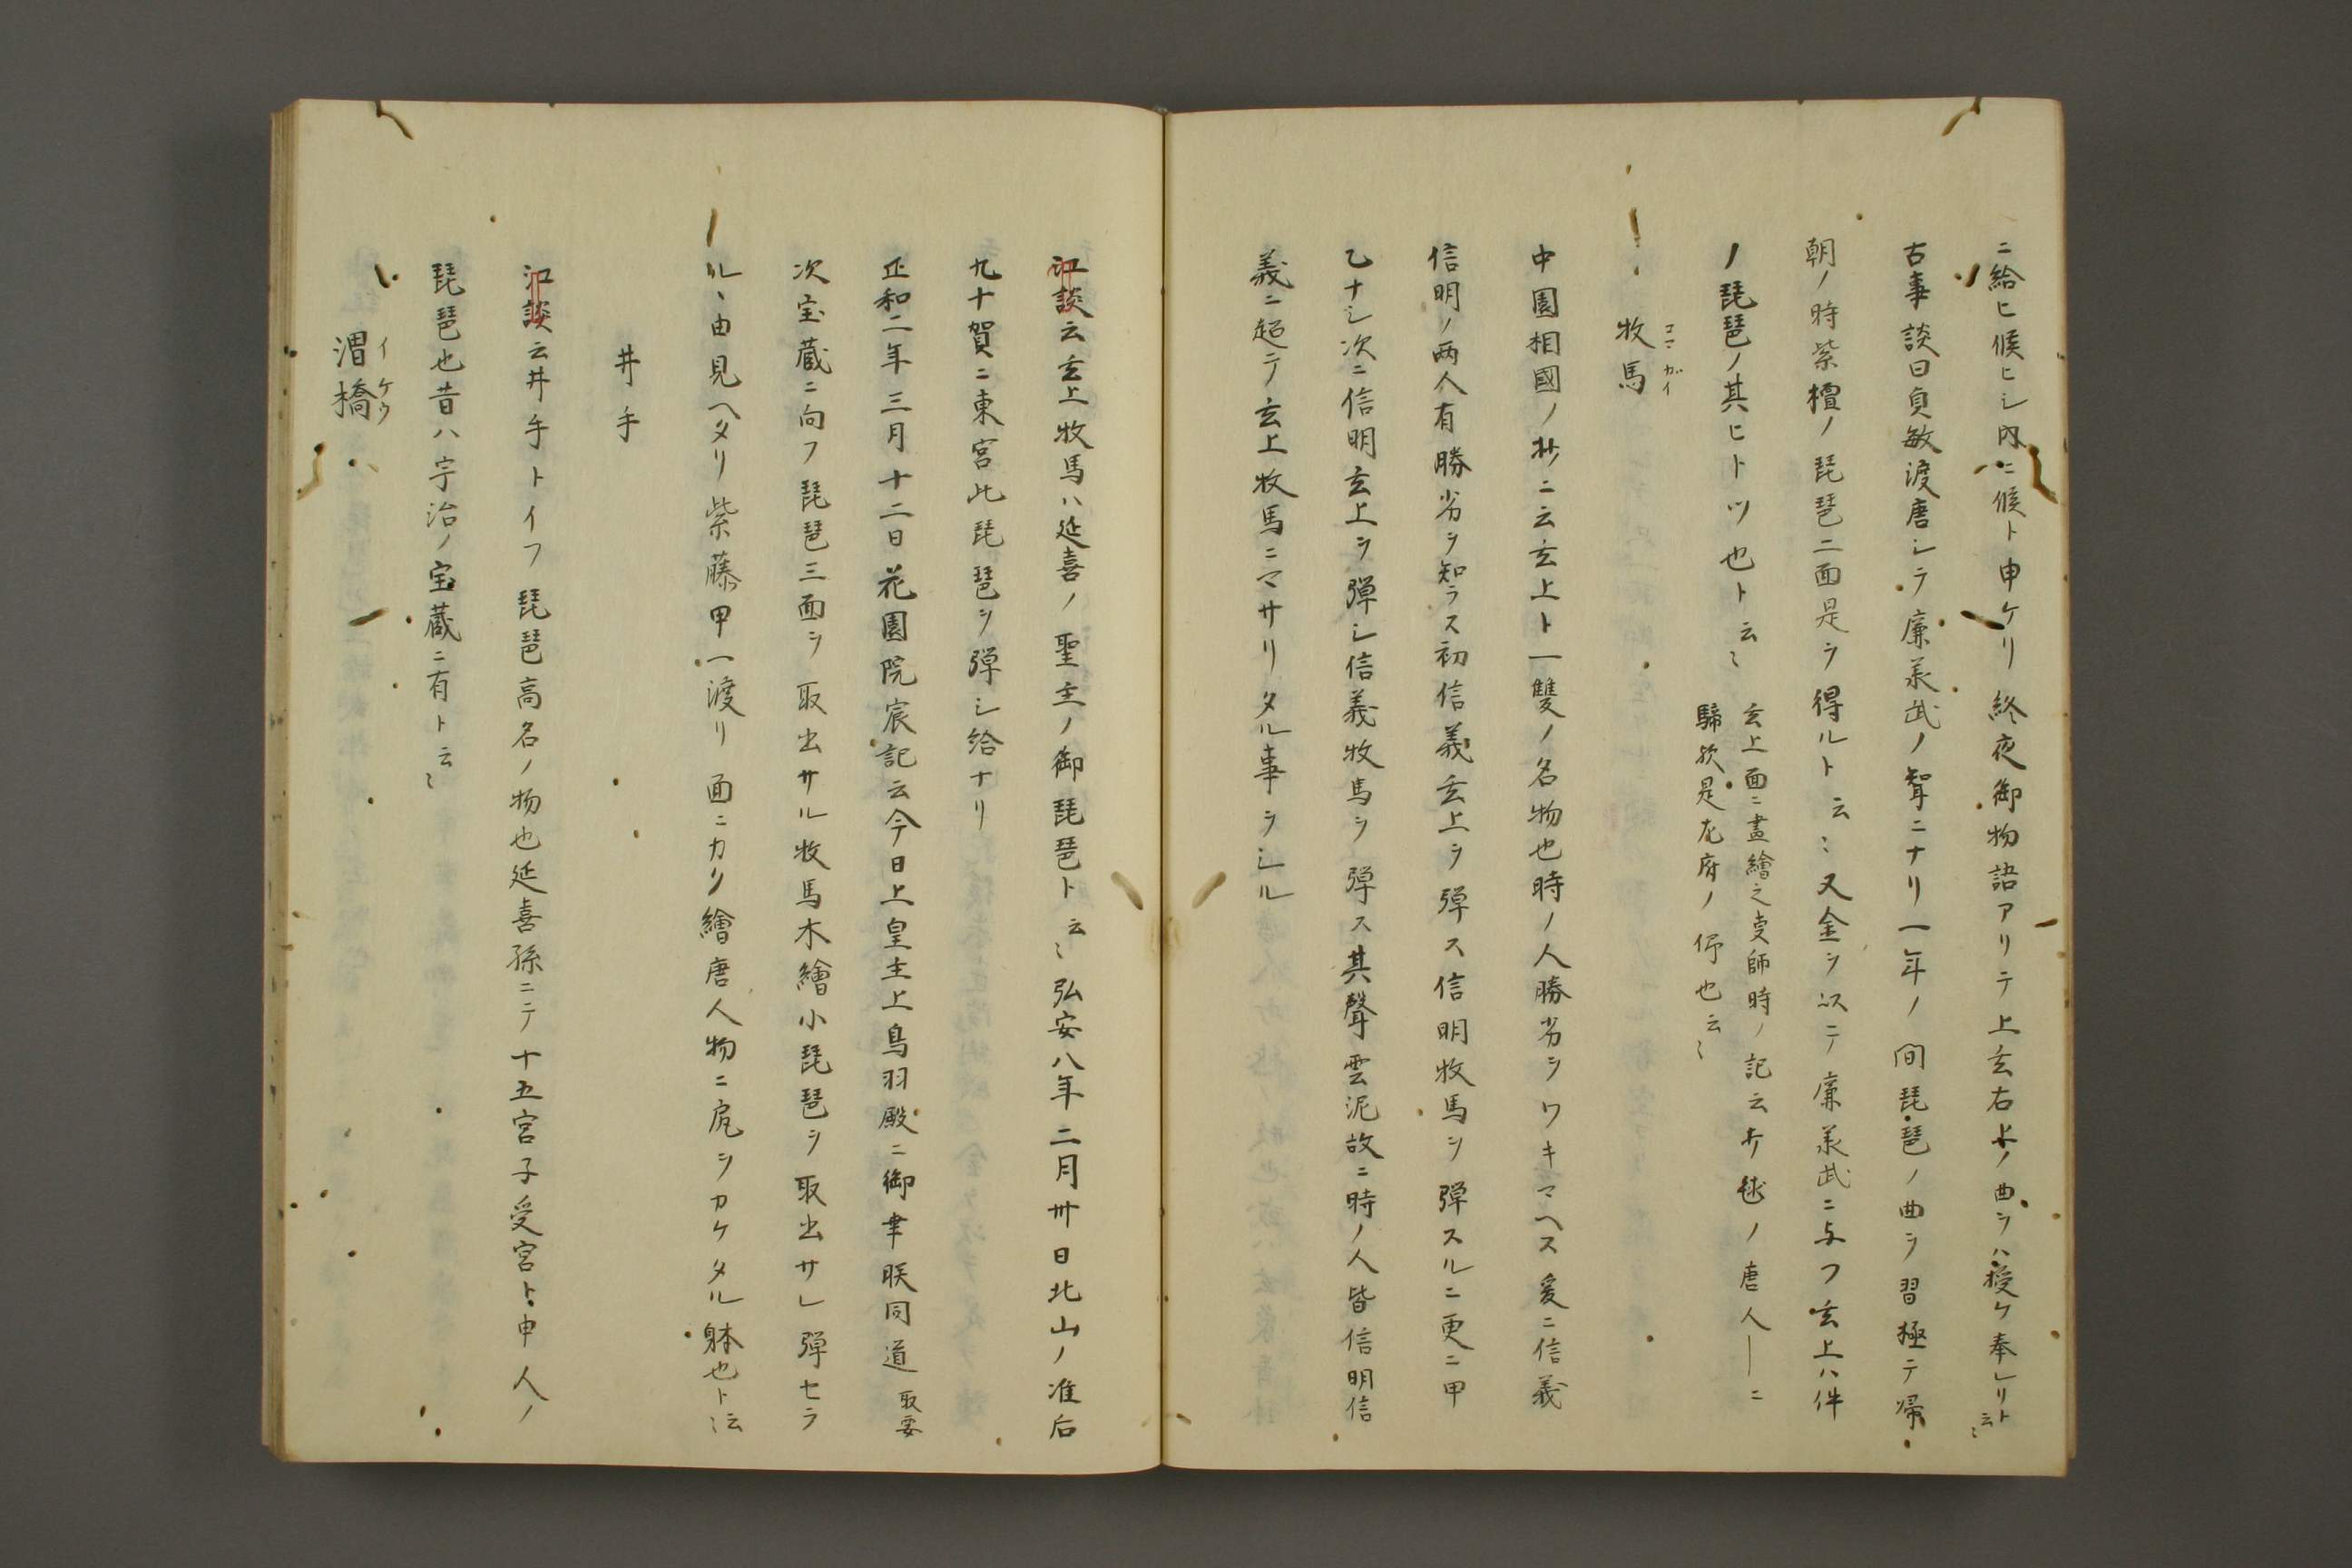 ニ給ヒ候ヒシ内ニ候ト申ケリ終夜御物語アリテ上玄右上ノ曲ヲハ授ケ奉レリト云〻
古事談曰貞敏渡唐シテ廉義武ノ聟ニナリ一年ノ間琵琶ノ曲ヲ習極テ帰
朝ノ時紫檀ノ琵琶二面是ヲ得ルト云〻又金ヲ以テ廉義武ニ与フ玄上ハ件
ノ琵琶ノ其ヒトツ也ト云〻
玄上面ニ畫繪之事師時ノ記云打毬ノ唐人―ニ
騎歟是左府ノ仰也云〻
牧馬
コマ ガイ
中園相國ノ抄ニ云玄上ト一雙ノ名物也時ノ人勝劣ヲワキマヘス爰ニ信義
信明ノ両人有勝劣ヲ知ラス初信義玄上ヲ弾ス信明牧馬ヲ弾スルニ更ニ甲
乙ナシ次ニ信明玄上ヲ弾シ信義牧馬ヲ弾ス其聲雲泥故ニ時ノ人皆信明信
義ニ超テ玄上牧馬ニマサリタル事ヲシル
江談云玄上牧馬ハ延喜ノ聖主ノ御琵琶ト云〻弘安八年二月卅日北山ノ准后
九十賀ニ東宮此琵琶ヲ弾シ給ナリ
正和二年三月十二日花園院宸記云今日上皇主上鳥羽殿ニ御幸朕同道取要
次宝蔵ニ向フ琵琶三面ヲ取出サル牧馬木繪小琵琶ヲ取出サレ弾セラ
ルヽ由見ヘタリ紫藤甲一渡リ面ニカリ繪唐人物ニ尻ヲカケタル躰也ト云〻
井手
江談云井手トイフ琵琶高名ノ物也延喜孫ニテ十五宮子受宮ト申人ノ
琵琶也昔ハ宇治ノ宝蔵ニ有ト云〻
渭橋
イ ケウ